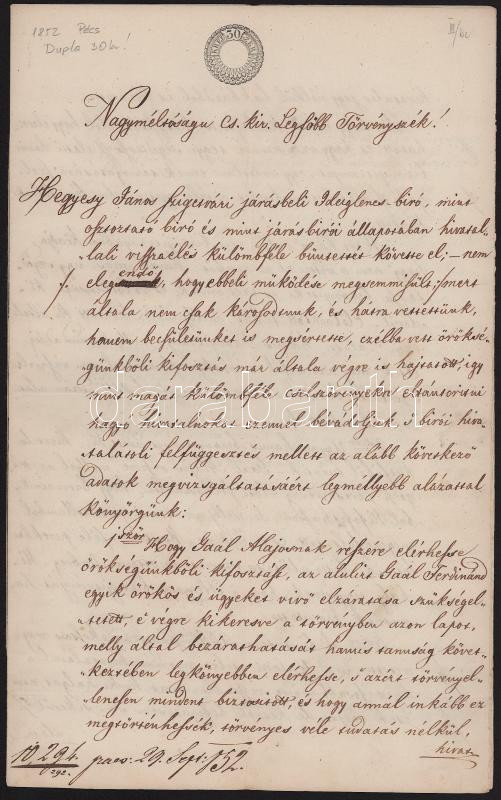 1852 Pécs
Dupla 30kr!
30
Nagyméltóságu cs. kir. Legföbb Törvényszék!
Hegyesy János szigetvári járásbeli Ideiglenes-biró, mint
osztoztató biró és mint járásbirói állapotában hivatal-
-lali visszaélés külömbféle büntettét követte el; – nem
elegendö, hogyebbeli müködése megsemmisült; mert
általa nem csak károsodtunk, és hátra vettettünk,
hanem becsületünket is megsértette, czélba vett öröksé-
-günkböli kifosztás már általa végre is hajtatott, igy
mint magát külömbféle cselszövényekre eltántoritni
hagyó hivatalnokot ezennel bevádoljuk s birói hiva-
-talátoli felfüggesztés mellett az alább következö
adatok megvizsgáltatásáért legméllyebb alázattal
könyörgünk:
1ször Hogy Gaál Alajosnak részére elérhesse
örökségünkböli kifosztást, az alulirt Gaál Ferdinánd
egyik örökös és ügyeket vivö elzáratása szükségel-
-tetett, é végre kikeresve a törvényben azon lapot,
melly által bezárathatását hamis tanuság követ-
-keztében legkönyebben elérhesse, s azért törvényel-
-lenesen mindent biztositott, és hogy annál inkább ez
megtörténhessék, törvényes véle tudatás nélkül,
hivat-
10294
praes: 29. Sept: 852.
darabanth